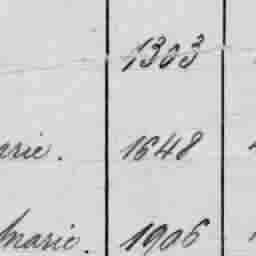 1303
arie. 1648
Marie. 1906